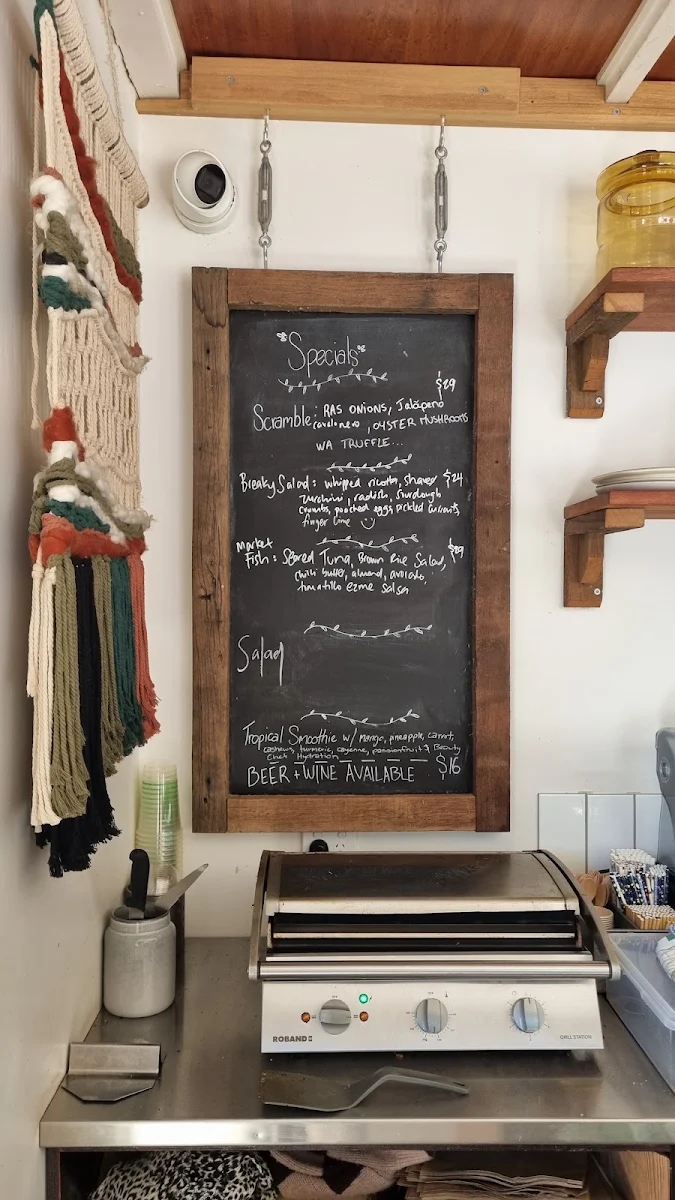 Specials
$29
Scramble: RAS ONIONS, Jalapeno
cavolonero, OYSTER MUSHROOMS
WA TRUFFLE...
Breaky Salad: whipped ricotta, shaved $24
zucchini, radish, sourdough
crumbs, poached eggs, pickled currants,
finger lime
Market
Fish: Seared Tuna, Brown Rice Salad,
chilli butter, almond, avocado,
tomatillo ezme salsa
Salad
Tropical Smoothie w/ Mango, pineapple, carrot,
cashews, turmeric, cayenne, passionfruit & Beauty
Chef Hydration
BEER + WINE AVAILABLE $16
ROBAND
GRILL STATION